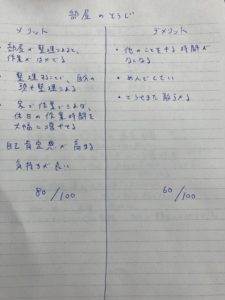 部屋のそうじ
メリット
・部屋が整理されると、
作業がはかどる
・整理すること、自分の
頭も整理される
・家で作業できれば、
休日の作業時間を
大幅に増やせる
自己肯定感が高まる
気持ちが良い
80/100
デメリット
・他のことをする時間が
なくなる
・めんどくさい
・どうせまた散らかる
60/100